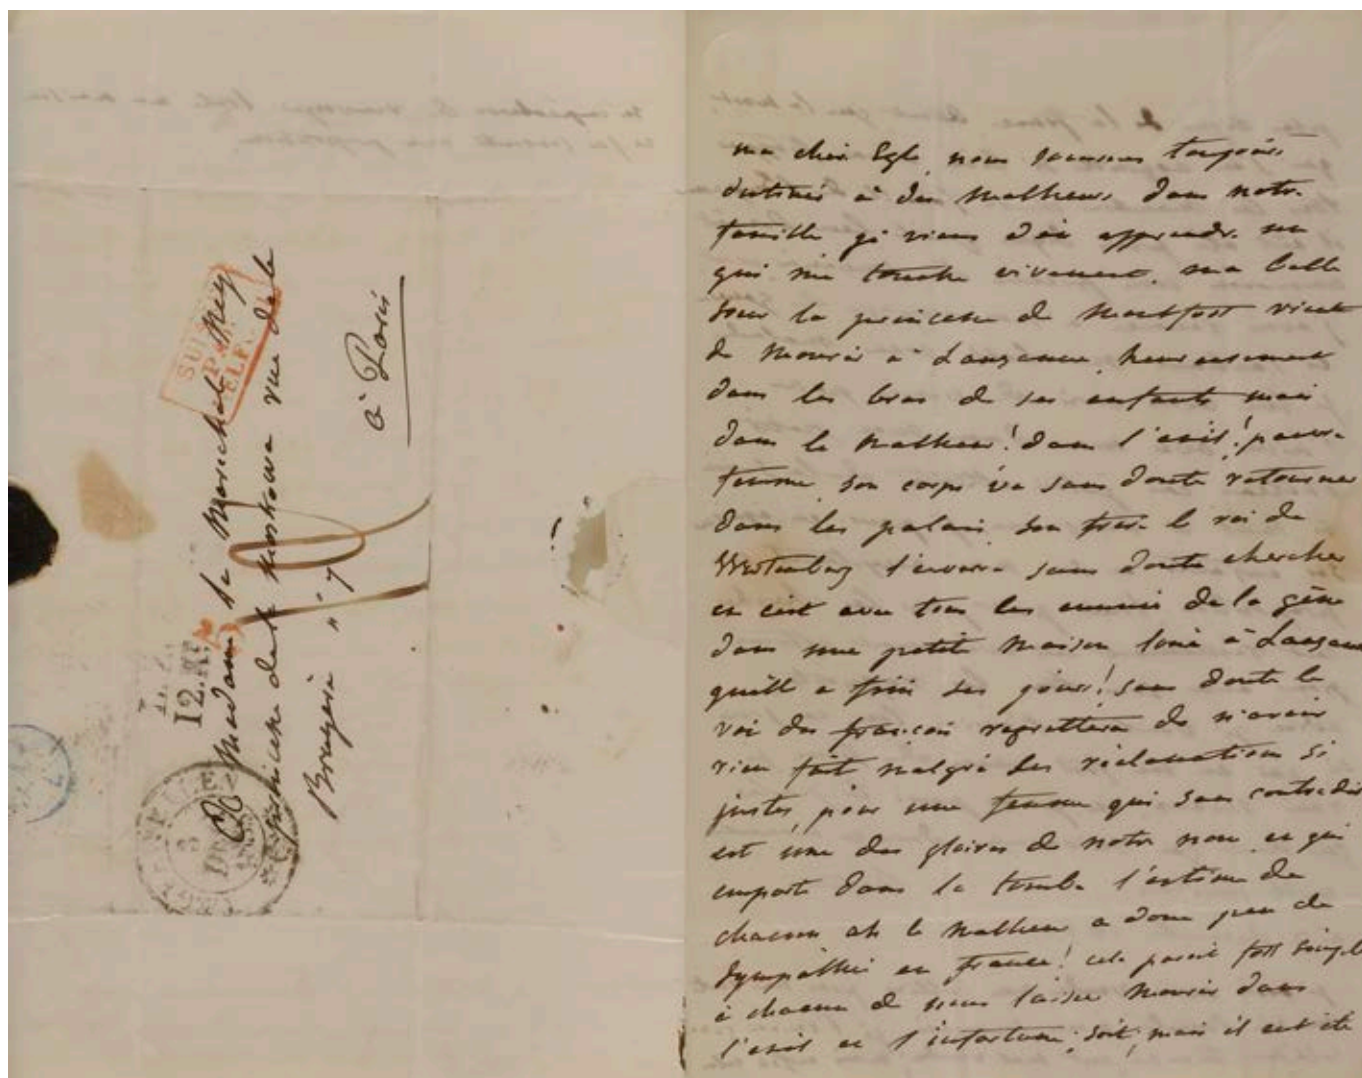 Madame la Marechale Ney
princesse de la Moskowa rue de la
Bruyere n° 7
à Paris
SUI
P.
ELF
12.
ma cher Eglé, nous sommes toujours
destinés à des malheurs dans notre
famille je viens d'en apprendre un
qui me touche vivement. ma belle
sœur la princesse de Montfort vient
de mourir à Lauzanne, heureusement
dans les bras de ses enfants mais
dans le malheur! dans l'exil! pauvre
femme, son corps va sans doute retourner
dans les palais, son frere le roi de
Wurtemberg l'enverra sans doute chercher
en c'est avec tous les ennuis de la gêne
dans une petite maison loué à Lauzanne
quelle a fini ses jours! sans doute le
roi des français regrettera de n'avoir
rien fait malgré des réclamations si
justes, pour une femme qui sans contredit
est une des gloires de notre nom, et qui
emporte dans la tombe l'estime de
chacun ah le malheur a donc peu de
sympathie en france! cela parait tout simple
à chacun de nous laisser mourir dans
l'exil et l'infortune; soit, mais il eut été